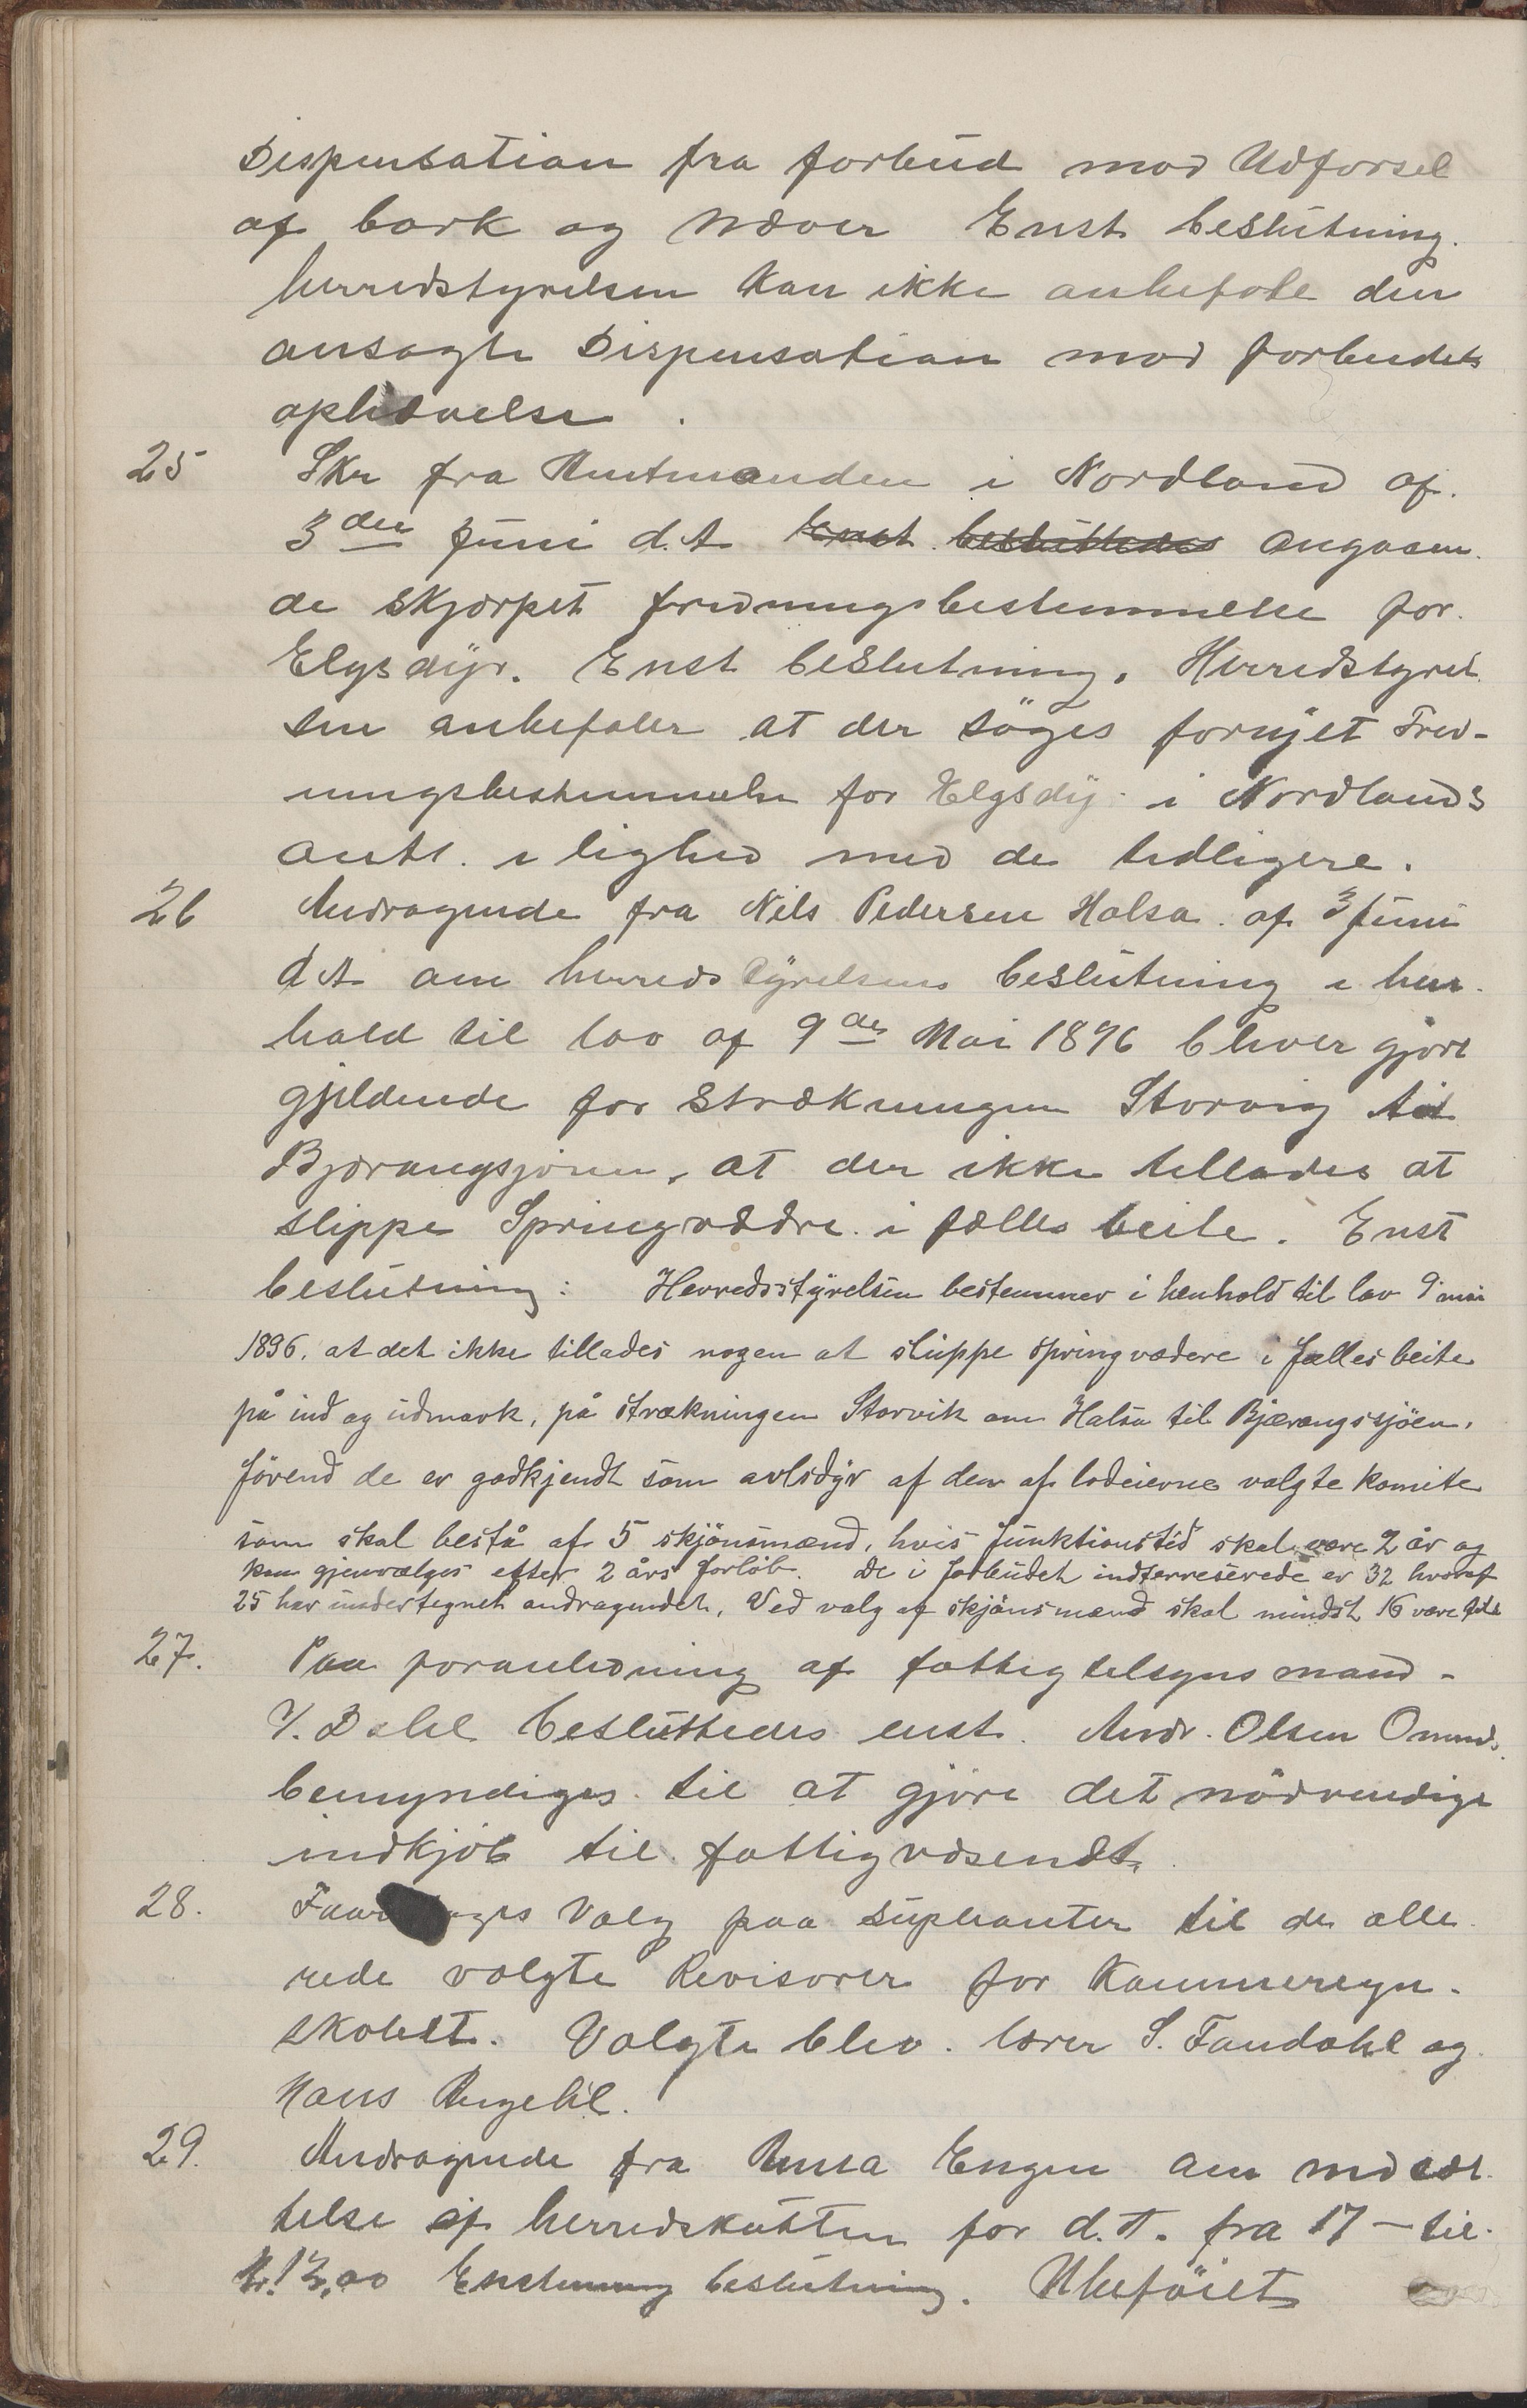 Dispensation fra forbud mod Udførsel
af bark og Næver Enst beslutning.
herredstyrelsen kan ikke anbefale den
ansøgte Dispensation mod forbudets
ophævelse.
25 Skr fra Amtmanden i Nordland af.
3den Juni d.A. Enst. besluttedes angaaen
de skjærpet fredningsbestemmelse for.
Elgsdyr. Enst beslutning. Herredstyrel
sen anbefaler at der søges fornyet Fred-
ningsbestemmelse for Elgsdyr i Nordlands
amt. i lighed med de tidligere.
26 Andragende fra Nils Pedersen Halsa. af 3 Juni
d.A om herredstyrelsens beslutning i hen-
hold til lov af 9de Mai 1896 bliver gjort
gjeldende for strækningen Storvig til
Bjærangsjøen, at der ikke tillades at
slippe Springvæddre i fælles beite. Enst
beslutning: Herredsstyrelsen bestemmer i henhold til lov 9 mai
1896. at det ikke tillades nogen at slippe springvædere i fælles beite
på ind og udmark, på strækningen Storvik om Halsa til Bjærangssjöen,
förend de er godkjendt som avlsdyr af den af lodeierne valgte komite
som skal bestå af 5 skjönsmænd, hvis funktionstid skal være 2 år og
kan gjenvælges efter 2 års forlöb. De i forbudet indterreserede er 32 hvoraf
25 har undertegnet andragendet, Ved valg af skjönsmænd skal mindst 16 være
27. Paa foranledning af fattigtilsynsmand-
Dahl besluttedes enst. Andr. Olsen
bemyndiges til at gjøre det nødvendige
indkjøb til fattigvæsendt.
28. Valg paa suplianter til de alle-
rede valgte Revisorer for Kommuneregn-
skabet. Valgte blev. lærer S. Fondahl og
Hans Angell.
29. Andragende fra Anna Engen om nedsæt-
telse af herredskatten for d.A. fra 17 – til
kr. 12,00 Enstemmig beslutning. Ubeføiet